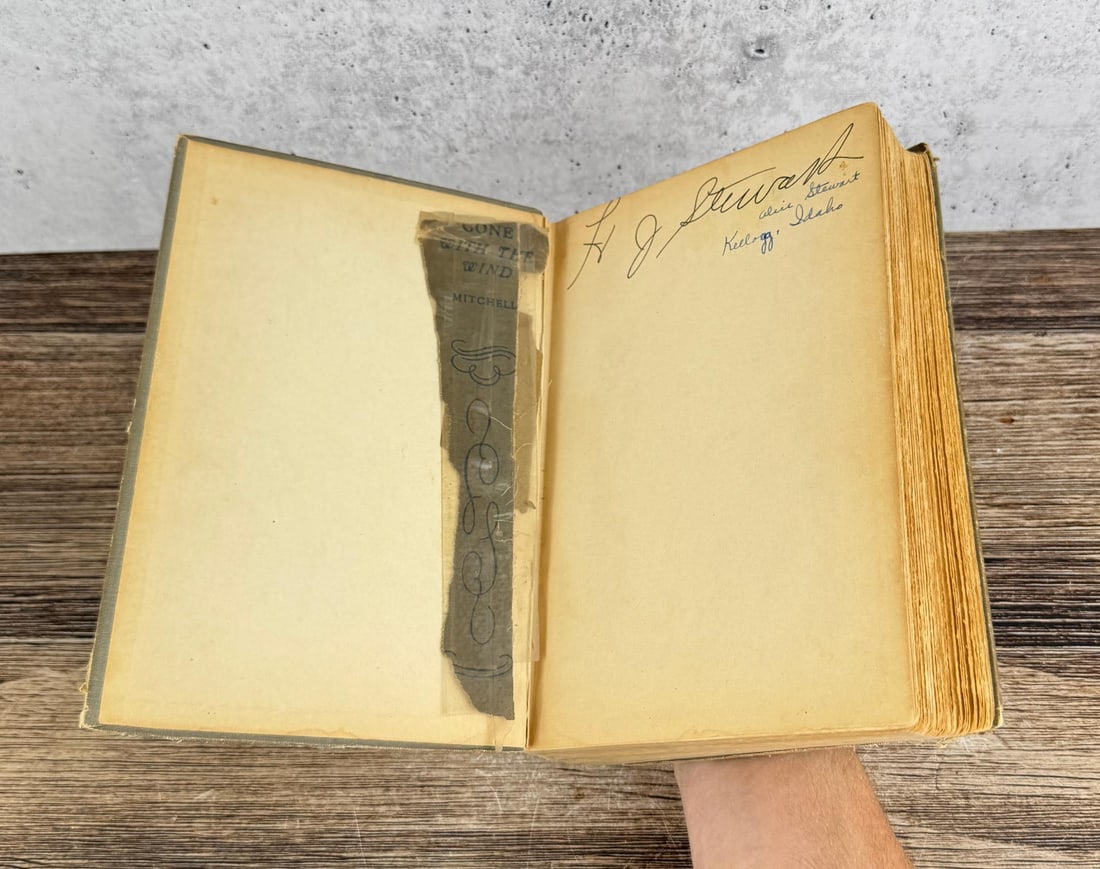 GONE
WITH THE
WIND
MITCHELL
H J Stewart
Alice Stewart
Kellogg, Idaho